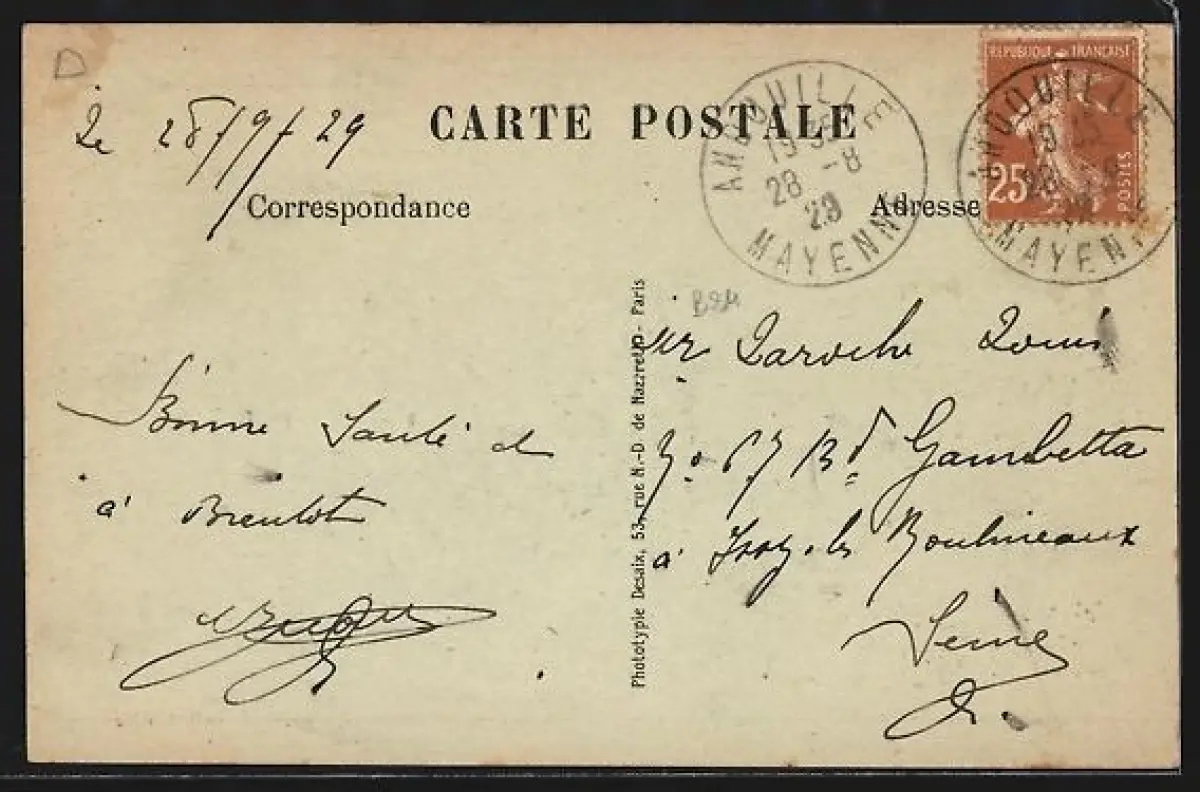 D
Le 28/9/29
CARTE POSTALE
Correspondance
Adresse
ANDOUILLE
19 35
28 -8
29
MAYENNE
REPUBLIQUE FRANÇAISE
25
POSTES
ANDOUILLE
19 35
28 -8
MAYENNE
Phototypie Desaix, 53, rue N.-D de Nazareth - Paris
Bonne Santé et
à Bientôt
Mr Laroche Louis
No 67 Bd Gambetta
à Issy-les Moulineaux
Seine